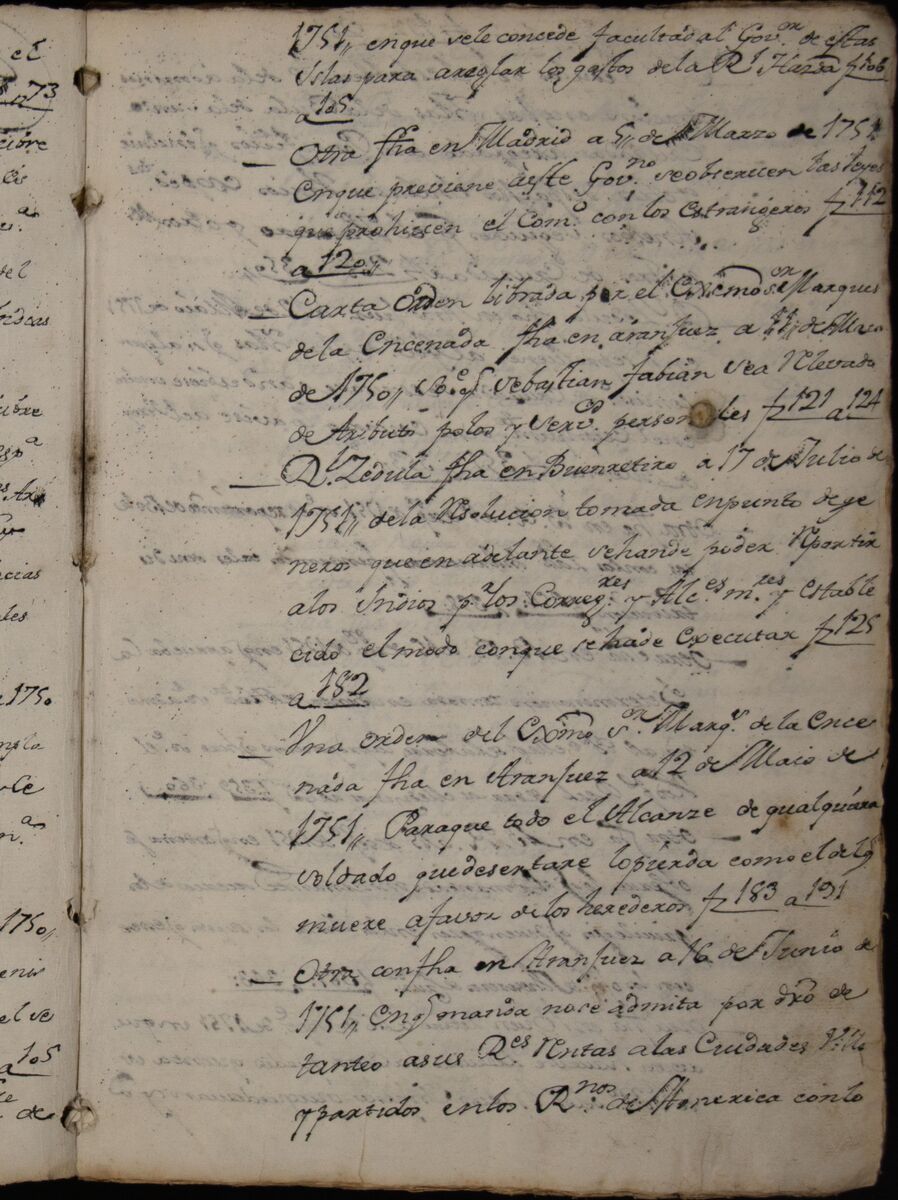 el
73
1750
1750,,
el se
a 105
de
1751,, enque sele concede facultad al Gov.or de estas
Yslas para areglar los gastos de la R.l Haz.da f 106
a 105
Otra fha en Madrid a 5,, de Marzo de 1751
Enque previene àeste Gov.no seobserven las leyes
que prohiven el Com.o con los estrangeros f 112
a 120,,
Carta Orden librada por el Exmo S.or Marques
de la Encenada fha en aranjuez a 11,, de Maio
de 1750,, Sebastian fabian sea Relevado
de tributo polos y serv.o personales f 121 a 124
R.l Zedula fha en Buenretiro a 17 de Julio de
1751,, de la Resolucion tomada enpunto de ge
neros que en adelante sehande poder Repartir
alos Yndios p.r los Correg.res y Alc.es m.res y estable
cido el modo conque sehade executar f 125
a 182
Vna orden del Exmo S.or Marq.s de la Ence
nada fha en Aranjuez a 12 de Maio de
1751,, Paraque todo el Alcanze de qualquiera
soldado quedesertare lopierda como el delq.e
muere afavor delos herederos f 183 a 191
Otra con fha en Aranjuez a 16 de Junio de
1751,, Enq.e manda nose admita por dro de
tanteo asus R.es Rentas a las Ciudades Villa
ypartidos enlos R.nos de America conlo